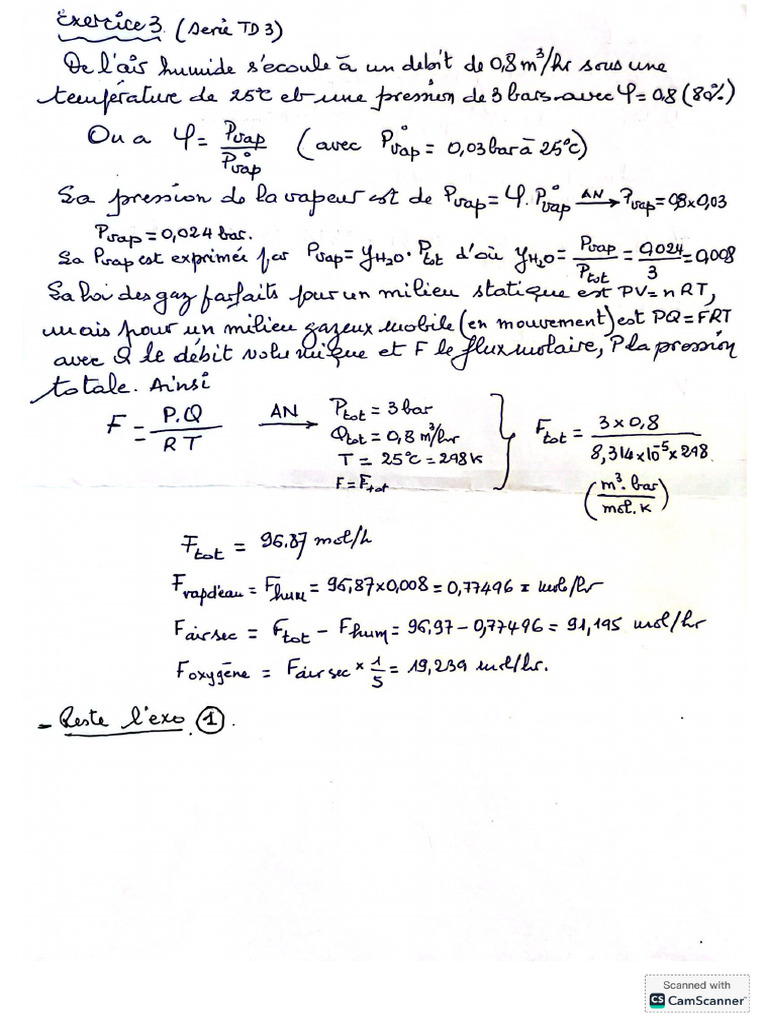 Exercice 3. (Serie TD 3)
De l'air humide s'ecoule à un debit de 0,8 m³/hr sous une
température de 25°C et une pression de 3 bars avec φ = 0.8 (80%)
On a φ = Pvap / P°vap (avec P°vap = 0,03 bar à 25°C)
La pression de la vapeur est de Pvap = φ. P°vap AN → Pvap = 0,8 x 0,03
Pvap = 0,024 bar.
La Pvap est exprimée par Pvap = yH2O . Ptot d'où yH2O = Pvap / Ptot = 0,024 / 3 = 0,008
La loi des gaz parfaits pour un milieu statique est PV = nRT,
mais pour un milieu gazeux mobile (en mouvement) est PQ = FRT
avec Q le débit volumique et F le flux molaire, P la pression
totale. Ainsi
F = P.Q / RT AN → Ptot = 3 bar
Qtot = 0,8 m³/hr
T = 25°C = 298 K
F = Ftot
Ftot = 3 x 0,8 / 8,314 x 10⁻⁵ x 298
(m³. bar / mol. K)
Ftot = 96.87 mol/h
Fvap d'eau = Fhum = 96,87 x 0,008 = 0,77496 = mol/hr
Fair sec = Ftot - Fhum = 96,97 - 0,77496 = 91,195 mol/hr
Foxygène = Fair sec x 1/5 = 19,239 mol/hr.
- Reste l'exo. ①.
Scanned with
CS CamScanner